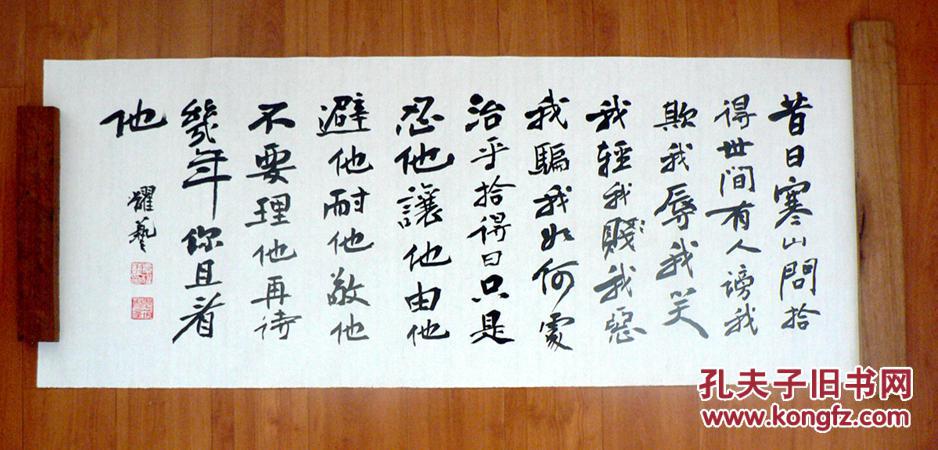 昔日寒山問拾
得世間有人謗我
欺我辱我笑
我輕我賤我惡
我騙我如何處
治乎拾得曰只是
忍他讓他由他
避他耐他敬他
不要理他再待
幾年你且看
他
耀藝
孔夫子旧书网
www.kongfz.com